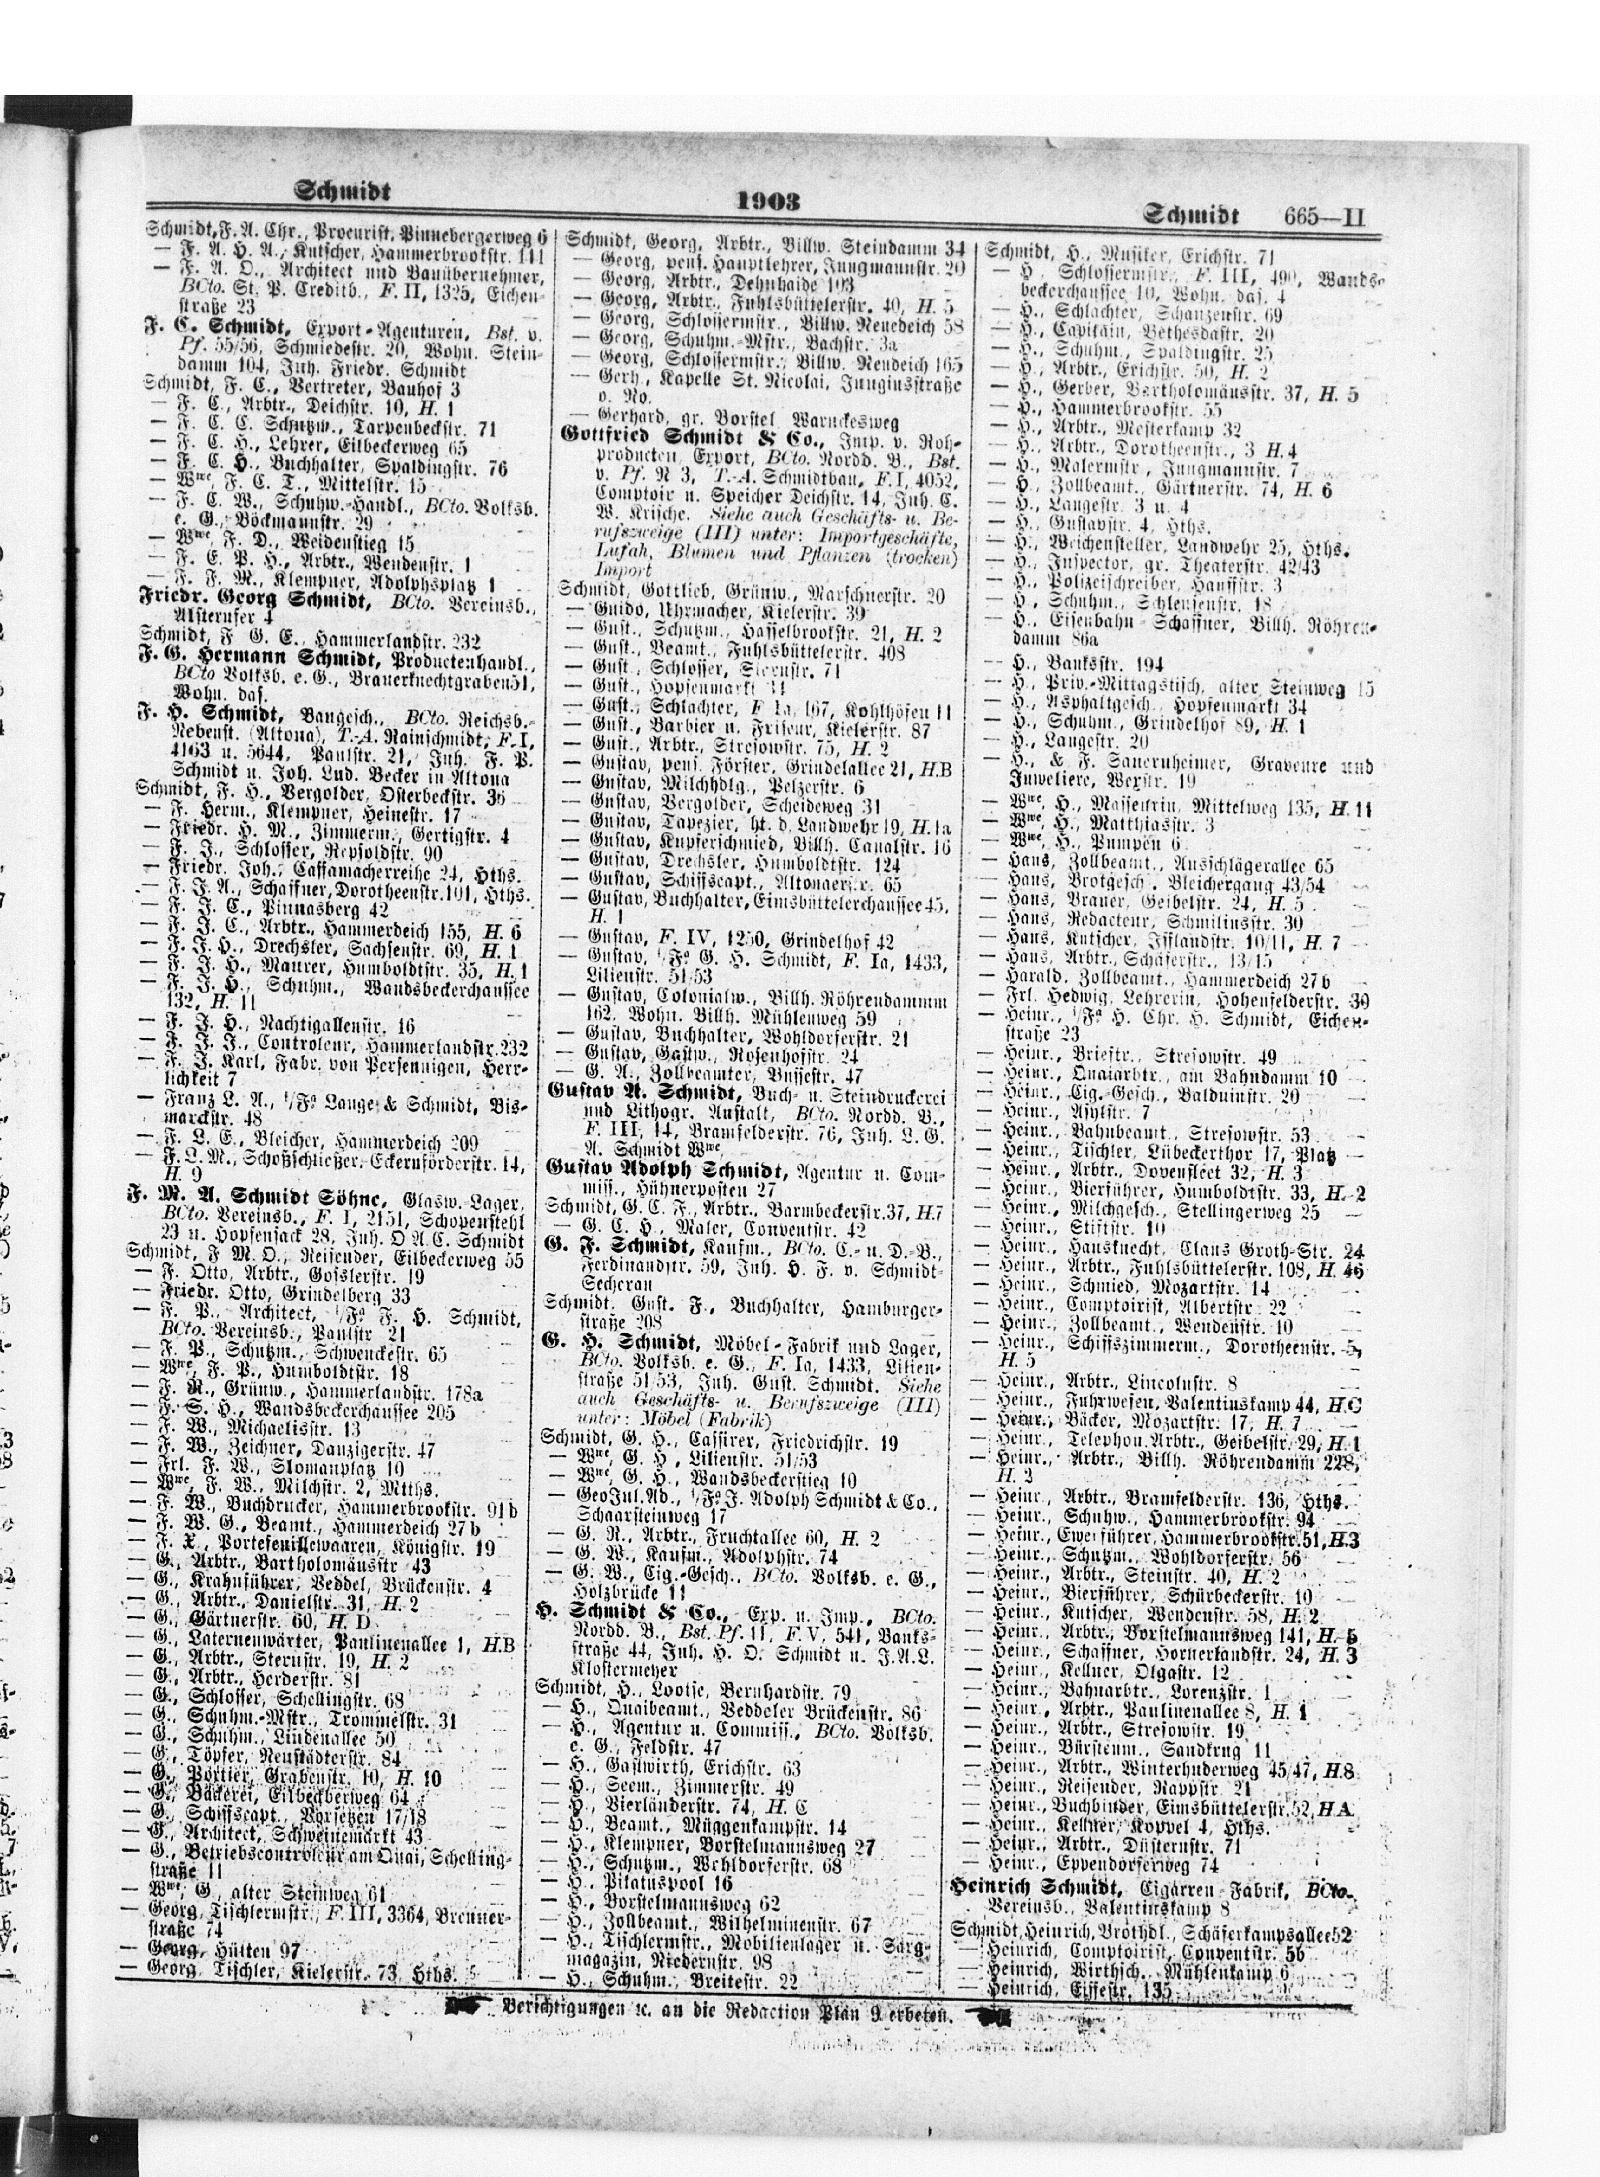 Schmidt
1903
Schmidt 665—II
Schmidt, F. A. Chr., Procurist, Pinnebergerweg 6
— F. A. H. A., Kutscher, Hammerbrookstr. 111
— F. A. O., Architect und Bauübernehmer,
BCto. St. P. Creditb., F. II, 1325, Eichen-
straße 23
F. C. Schmidt, Export-Agenturen, Bst. v.
Pf. 55/56, Schmiedestr. 20, Wohn. Stein-
damm 104, Inh. Friedr. Schmidt
Schmidt, F. C., Vertreter, Bauhof 3
— F. C., Arbtr., Deichstr. 10, H. 1
— F. C. C. Schutzm., Tarpenbeckstr. 71
— F. C. H., Lehrer, Eilbeckerweg 65
— F. C. H., Buchhalter, Spaldingstr. 76
— Wwe, F. C. T., Mittelstr. 15
— F. C. W., Schuhw.-Handl., BCto. Volksb.
e. G., Böckmannstr. 29
— Wwe, F. D., Weidenstieg 15
— F. E. P. H., Arbtr., Wendenstr. 1
— F. F. M., Klempner, Adolphsplatz 1
Friedr. Georg Schmidt, BCto. Vereinsb.,
Alsterufer 4
Schmidt, F. G. E., Hammerlandstr. 232
F. G. Hermann Schmidt, Productenhandl.,
BCto Volksb. e. G., Brauerknechtgraben 51,
Wohn. das.
F. H. Schmidt, Baugesch., BCto. Reichsb.-
Nebenst. (Altona), T.-A. Rainschmidt, F. I,
4163 u. 5644, Paulstr. 21, Inh. F. P.
Schmidt u. Joh. Lud. Becker in Altona
Schmidt, F. H., Vergolder, Osterbeckstr. 36
— F. Herm., Klempner, Heinestr. 17
— Friedr. H. M., Zimmerm., Gertigstr. 4
— F. J., Schlosser, Repsoldstr. 90
— Friedr. Joh., Caffamacherreihe 24, Hths.
— F. J. A., Schaffner, Dorotheenstr. 101, Hths.
— F. J. C., Pinnasberg 42
— F. J. C., Arbtr., Hammerdeich 155, H. 6
— F. J. H., Drechsler, Sachsenstr. 69, H. 1
— F. J. H., Maurer, Humboldtstr. 35, H. 1
— F. J. H., Schuhm., Wandsbeckerchaussee
132, H. 11
— F. J. H., Nachtigallenstr. 16
— F. J. J., Controleur, Hammerlandstr. 232
— F. J. Karl, Fabr. von Persennigen, Herr-
lichkeit 7
— Franz L. A., i/Fa Lange & Schmidt, Bis-
marckstr. 48
— F. L. E., Bleicher, Hammerdeich 209
— F. L. M., Schoßschließer, Eckernförderstr. 14,
H. 9
F. M. A. Schmidt Söhne, Glasw.-Lager,
BCto. Vereinsb., F. I, 2151, Schopenstehl
23 u. Hopfensack 28, Inh. O A. C. Schmidt
Schmidt, F M. O., Reisender, Eilbeckerweg 55
— F. Otto, Arbtr., Goßlerstr. 19
— Friedr. Otto, Grindelberg 33
— F. P., Architect, i/Fa F. H. Schmidt,
BCto. Vereinsb., Paulstr 21
— F. P., Schutzm., Schwenckestr. 65
— Wwe, F. P., Humboldtstr. 18
— F. R., Grünw., Hammerlandstr. 178a
— F. S. H., Wandsbeckerchaussee 205
— F. W., Michaelisstr. 13
— F. W., Zeichner, Danzigerstr. 47
— Frl. F. W., Slomanplatz 10
— Wwe, F. W., Milchstr. 2, Mtths.
— F. W., Buchdrucker, Hammerbrookstr. 91b
— F. W. G., Beamt., Hammerdeich 27b
— F. X., Portefeuillewaaren, Königstr. 19
— G., Arbtr., Bartholomäusstr 43
— G., Krahnführer, Veddel, Brückenstr. 4
— G., Arbtr., Danielstr. 31, H. 2
— G., Gärtnerstr. 60, H. D
— G., Laternenwärter, Paulinenallee 1, H. B
— G., Arbtr., Sternstr. 19, H. 2
— G., Arbtr., Herderstr. 81
— G., Schlosser, Schellingstr. 68
— G., Schuhm.-Mstr., Trommelstr. 31
— G., Schuhm., Lindenallee 50
— G., Töpfer, Neustädterstr. 84
— G., Portier, Grabenstr. 10, H. 10
— G., Bäckerei, Eilbeckerweg 64
— G., Schiffscapt., Vorsetzen 17/18
— G., Architect, Schweinemarkt 43
— G., Betriebscontroleur am Quai, Schelling-
straße 11
— Wwe, G., alter Steinweg 61
— Georg, Tischlermstr., F. III, 3364, Brenner-
straße 74
— Georg, Hütten 97
— Georg, Tischler, Kielerstr. 73, Hths.
Schmidt, Georg, Arbtr., Billw. Steindamm 34
— Georg, pens. Hauptlehrer, Jungmannstr. 20
— Georg, Arbtr., Dehnhaide 103
— Georg, Arbtr., Fuhlsbüttelerstr. 40, H. 5
— Georg, Schlossermstr., Billw. Neuedeich 58
— Georg, Schuhm.-Mstr., Bachstr. 3a
— Georg, Schlossermstr., Billw. Neudeich 165
— Gerh., Kapelle St. Nicolai, Jungiusstraße
o. No.
— Gerhard, gr. Borstel, Warnckesweg
Gottfried Schmidt & Co., Imp. v. Roh-
producten, Export, BCto. Nordd. B., Bst.
v. Pf. N 3, T.-A. Schmidtbau, F. I, 4052,
Comptoir u. Speicher Deichstr. 14, Inh. C.
W. Krische. Siehe auch Geschäfts- u. Be-
rufszweige (III) unter: Importgeschäfte,
Lufah, Blumen und Pflanzen (trocken)
Import
Schmidt, Gottlieb, Grünw., Marschnerstr. 20
— Guido, Uhrmacher, Kielerstr. 39
— Gust., Schutzm., Hasselbrookstr. 21, H. 2
— Gust., Beamt., Fuhlsbüttelerstr. 408
— Gust., Schlosser, Sternstr. 71
— Gust., Hopfenmarkt
— Gust., Schlachter, F. Ia, 167, Kohlhöfen 11
— Gust., Barbier u. Friseur, Kielerstr. 87
— Gust., Arbtr., Stresowstr. 75, H. 2
— Gustav, pens. Förster, Grindelallee 21, H. B
— Gustav, Milchhdlg., Pelzerstr. 6
— Gustav, Vergolder, Scheideweg 31
— Gustav, Tapezier, ht. d. Landwehr 19, H. 1a
— Gustav, Kupferschmied, Billh. Canalstr. 16
— Gustav, Drechsler, Humboldtstr. 124
— Gustav, Schiffscapt., Altonaerstr. 65
— Gustav, Buchhalter, Eimsbüttelerchaussee 45,
H. 1
— Gustav, F. IV, 1250, Grindelhof 42
— Gustav, i/Fa G. H. Schmidt, F. Ia, 1433,
Lilienstr. 51/53
— Gustav, Colonialw., Billh. Röhrendammm
162. Wohn. Billh. Mühlenweg 59
— Gustav, Buchhalter, Wohldorferstr. 21
— Gustav, Gastw., Rosenhofstr. 24
— G. A., Zollbeamter, Bussestr. 47
Gustav A. Schmidt, Buch- u. Steindruckerei
und Lithogr. Anstalt, BCto. Nordd. B.,
F. III, 14, Bramfelderstr. 76, Inh. L. G.
A. Schmidt Wwe,
Gustav Adolph Schmidt, Agentur u. Com-
miss., Hühnerposten 27
Schmidt, G. C. F., Arbtr., Barmbeckerstr. 37, H. 7
— G. C. H., Maler, Conventstr. 42
G. F. Schmidt, Kaufm., BCto. C.- u. D.-B.,
Ferdinandstr. 59, Inh. H. F. v. Schmidt-
Secherau
Schmidt, Gust. F., Buchhalter, Hamburger-
straße 208
G. H. Schmidt, Möbel-Fabrik und Lager,
BCto. Volksb. e. G., F. Ia, 1433, Lilien-
straße 51/53, Inh. Gust. Schmidt. Siehe
auch Geschäfts- u. Berufszweige (III)
unter: Möbel (Fabrik)
Schmidt, G. H., Cassirer, Friedrichstr. 19
— Wwe, G. H., Lilienstr. 51/53
— Wwe, G. H., Wandsbeckerstieg 10
— Geo Jul. Ad., i/Fa J. Adolph Schmidt & Co.,
Schaarsteinweg 17
— G. R., Arbtr., Fruchtallee 60, H. 2
— G. W., Kaufm., Adolphstr. 74
— G. W., Cig.-Gesch., BCto. Volksb. e. G.,
Holzbrücke 11
H. Schmidt & Co., Exp. u. Imp., BCto.
Nordd. B., Bst. Pf. 11, F. V, 541, Banks-
straße 44, Inh. H. O. Schmidt u. J. A. L.
Klostermeyer
Schmidt, H., Lootse, Bernhardstr. 79
— H., Quaibeamt., Veddeler Brückenstr. 86
— H., Agentur u. Commiss., BCto. Volksb.
e. G., Feldstr. 47
— H., Gastwirth, Erichstr. 63
— H., Seem., Zimmerstr. 49
— H., Vierländerstr. 74, H. C
— H., Beamt., Müggenkampstr. 14
— H., Klempner, Borstelmannsweg 27
— H., Schutzm., Wohldorferstr. 68
— H., Pilatuspool 16
— H., Borstelmannsweg 62
— H., Zollbeamt., Wilhelminenstr. 67
— H., Tischlermstr., Mobilienlager u. Sarg-
magazin, Niedernstr. 98
— H., Schuhm., Breitestr. 22
Schmidt, H., Musiker, Erichstr. 71
— H., Schlossermstr., F. III, 490, Wands-
beckerchaussee 10, Wohn. das. 4
— H., Schlachter, Schanzenstr. 69
— H., Capitain, Bethesdastr. 20
— H., Schuhm., Spaldingstr. 25
— H., Arbtr., Erichstr. 50, H. 2
— H., Gerber, Bartholomäusstr. 37, H. 5
— H., Hammerbrookstr. 55
— H., Arbtr., Mesterkamp 32
— H., Arbtr., Dorotheenstr., 3 H. 4
— H., Malermstr., Jungmannstr. 7
— H., Zollbeamt., Gärtnerstr. 74, H. 6
— H., Langestr. 3 u. 4
— H., Gustavstr. 4, Hths.
— H., Weichensteller, Landwehr 25, Hths.
— H., Inspector, gr. Theaterstr. 42/43
— H., Polizeischreiber, Hauffstr. 3
— H., Schuhm., Schleusenstr. 18
— H., Eisenbahn-Schaffner, Billh. Röhren-
damm 86a
— H., Banksstr. 194
— H., Priv.-Mittagstisch, alter Steinweg 15
— H., Asphaltgesch., Hopfenmarkt 34
— H., Schuhm., Grindelhof 89, H. 1
— H., Langestr. 20
— H., & F. Sauernheimer, Graveure und
Juweliere, Wexstr. 19
— Wwe, H., Masseurin, Mittelweg 135, H. 11
— Wwe, H., Matthiasstr. 3
— Wwe, H., Pumpen 6
— Hans, Zollbeamt., Ausschlägerallee 65
— Hans, Brotgesch., Bleichergang 43/54
— Hans, Brauer, Geibelstr. 24, H. 5
— Hans, Redacteur, Schmilinsstr. 30
— Hans, Kutscher, Ifflandstr. 10/11, H. 7
— Hans, Arbtr., Schäferstr., 13/15
— Harald, Zollbeamt., Hammerdeich 27b
— Frl. Hedwig, Lehrerin, Hohenfelderstr. 39
— Heinr., i/Fa H. Chr. H. Schmidt, Eichen-
straße 23
— Heinr., Briefstr., Stresowstr. 49
— Heinr., Quaiarbtr., am Bahndamm 10
— Heinr., Cig.-Gesch., Balduinstr. 20
— Heinr., Asylstr. 7
— Heinr., Bahnbeamt., Stresowstr. 53
— Heinr., Tischler, Lübeckerthor 17, Platz
— Heinr., Arbtr., Dovenfleet 32, H. 3
— Heinr., Bierführer, Humboldtstr. 33, H. 2
— Heinr., Milchgesch., Stellingerweg 25
— Heinr., Stiftstr. 10
— Heinr., Hausknecht, Claus Groth-Str. 24
— Heinr., Arbtr., Fuhlsbüttelerstr. 108, H. 46
— Heinr., Schmied, Mozartstr. 14
— Heinr., Comptoirist, Albertstr. 22
— Heinr., Zollbeamt., Wendenstr. 10
— Heinr., Schiffszimmerm., Dorotheenstr. 5,
H. 5
— Heinr., Arbtr., Lincolnstr. 8
— Heinr., Fuhrwesen, Valentinskamp 44, H. C
— Heinr., Bäcker, Mozartstr. 17, H. 7
— Heinr., Telephon. Arbtr., Geibelstr. 29, H. 1
— Heinr., Arbtr., Billh. Röhrendamm 228,
H. 2
— Heinr., Arbtr., Bramfelderstr. 136, Hths.
— Heinr., Schuhw., Hammerbrookstr. 94
— Heinr., Ewerführer, Hammerbrookstr. 51, H. 3
— Heinr., Schutzm., Wohldorferstr. 56
— Heinr., Arbtr., Steinstr. 40, H. 2
— Heinr., Bierführer, Schürbeckerstr. 10
— Heinr., Kutscher, Wendenstr. 58, H. 2
— Heinr., Arbtr., Borstelmannsweg 141, H. 5
— Heinr., Schaffner, Hornerlandstr. 24, H. 3
— Heinr., Kellner, Olgastr. 12
— Heinr., Bahnarbtr., Lorenzstr. 1
— Heinr., Arbtr., Paulinenallee 8, H. 1
— Heinr., Arbtr., Stresowstr. 19
— Heinr., Bürstenm., Sandkrug 11
— Heinr., Arbtr., Winterhuderweg 45/47, H. 8
— Heinr., Reisender, Rappstr. 21
— Heinr., Buchbinder, Eimsbüttelerstr. 52, H A
— Heinr., Kellner, Koppel 4, Hths.
— Heinr., Arbtr., Düsternstr. 71
— Heinr., Eppendorferweg 74
Heinrich Schmidt, Cigarren-Fabrik, BCto.
Vereinsb., Valentinskamp 8
Schmidt, Heinrich, Brothdl., Schäferkampsallee 52
— Heinrich, Comptoirist, Conventstr. 5b
— Heinrich, Wirthsch., Mühlenkamp 6
— Heinrich, Eiffestr. 135
Berichtigungen ꝛc. an die Redaction Plan 9 erbeten.